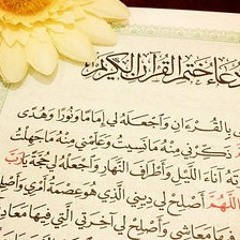 دعاء ختم القرآن الكريم
بالقرءان واجعله لي إماما ونورا وهدى
ذكرني منه مانسيت وعلمني منه ماجهلت
آناء الليل وأطراف النهار واجعله لي حجة يارب
اللهم أصلح لي ديني الذي هو عصمة أمري وأصلح
فيها معاشي وأصلح لي آخرتي التي فيها معادي